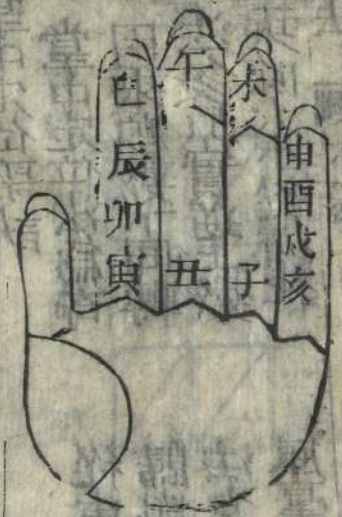 申酉戌亥
未子
午丑
巳辰卯寅